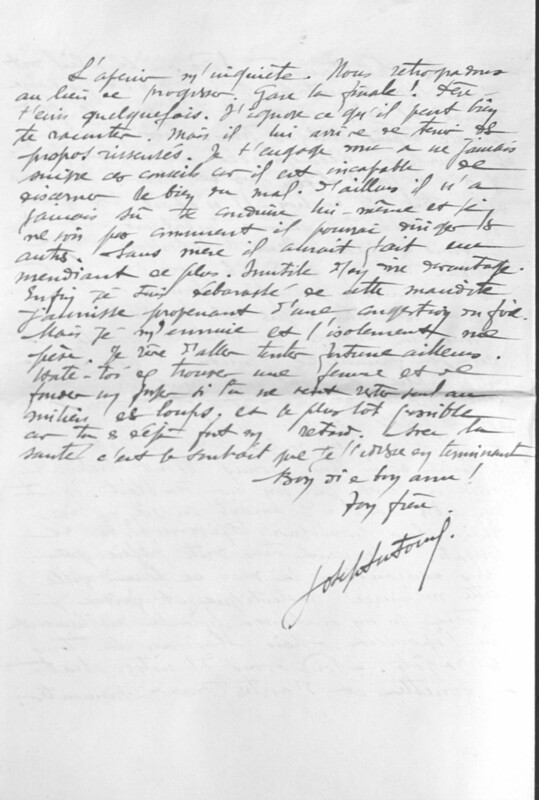 L'avenir m'inquiète. Nous retrogradons
au lieu de progresser. Gare la finale!
t'écris quelquefois. J'ignore ce qu'il peut bien
te raconter. Mais il lui arrive de tenir des
propos insensés. Je t'engage à ne jamais
suivre ces conseils car il est incapable de
discerner le bien du mal. D'ailleurs il n'a
jamais sû se conduire lui-même et je
ne vois pas comment il pourrai diriger les
autres. Sans mère il aurait fait un
mendiant de plus. Inutile d'en dire davantage.
Enfin je suis débarassé de cette maudite
jaunisse provenant d'une congestion du foie.
Mais je m'ennuie et l'isolement me
pèse. Je rêve d'aller tenter fortune ailleurs.
Hâte-toi de trouver une femme et de
fonder un foyer si tu ne veux rester seul au
milieu des loups. et le plus tôt possible
car tu es déjà fort en retard. Avec la
santé c'est le souhait que je t'adresse en terminant
Bon an!
Ton frère.
Joseph